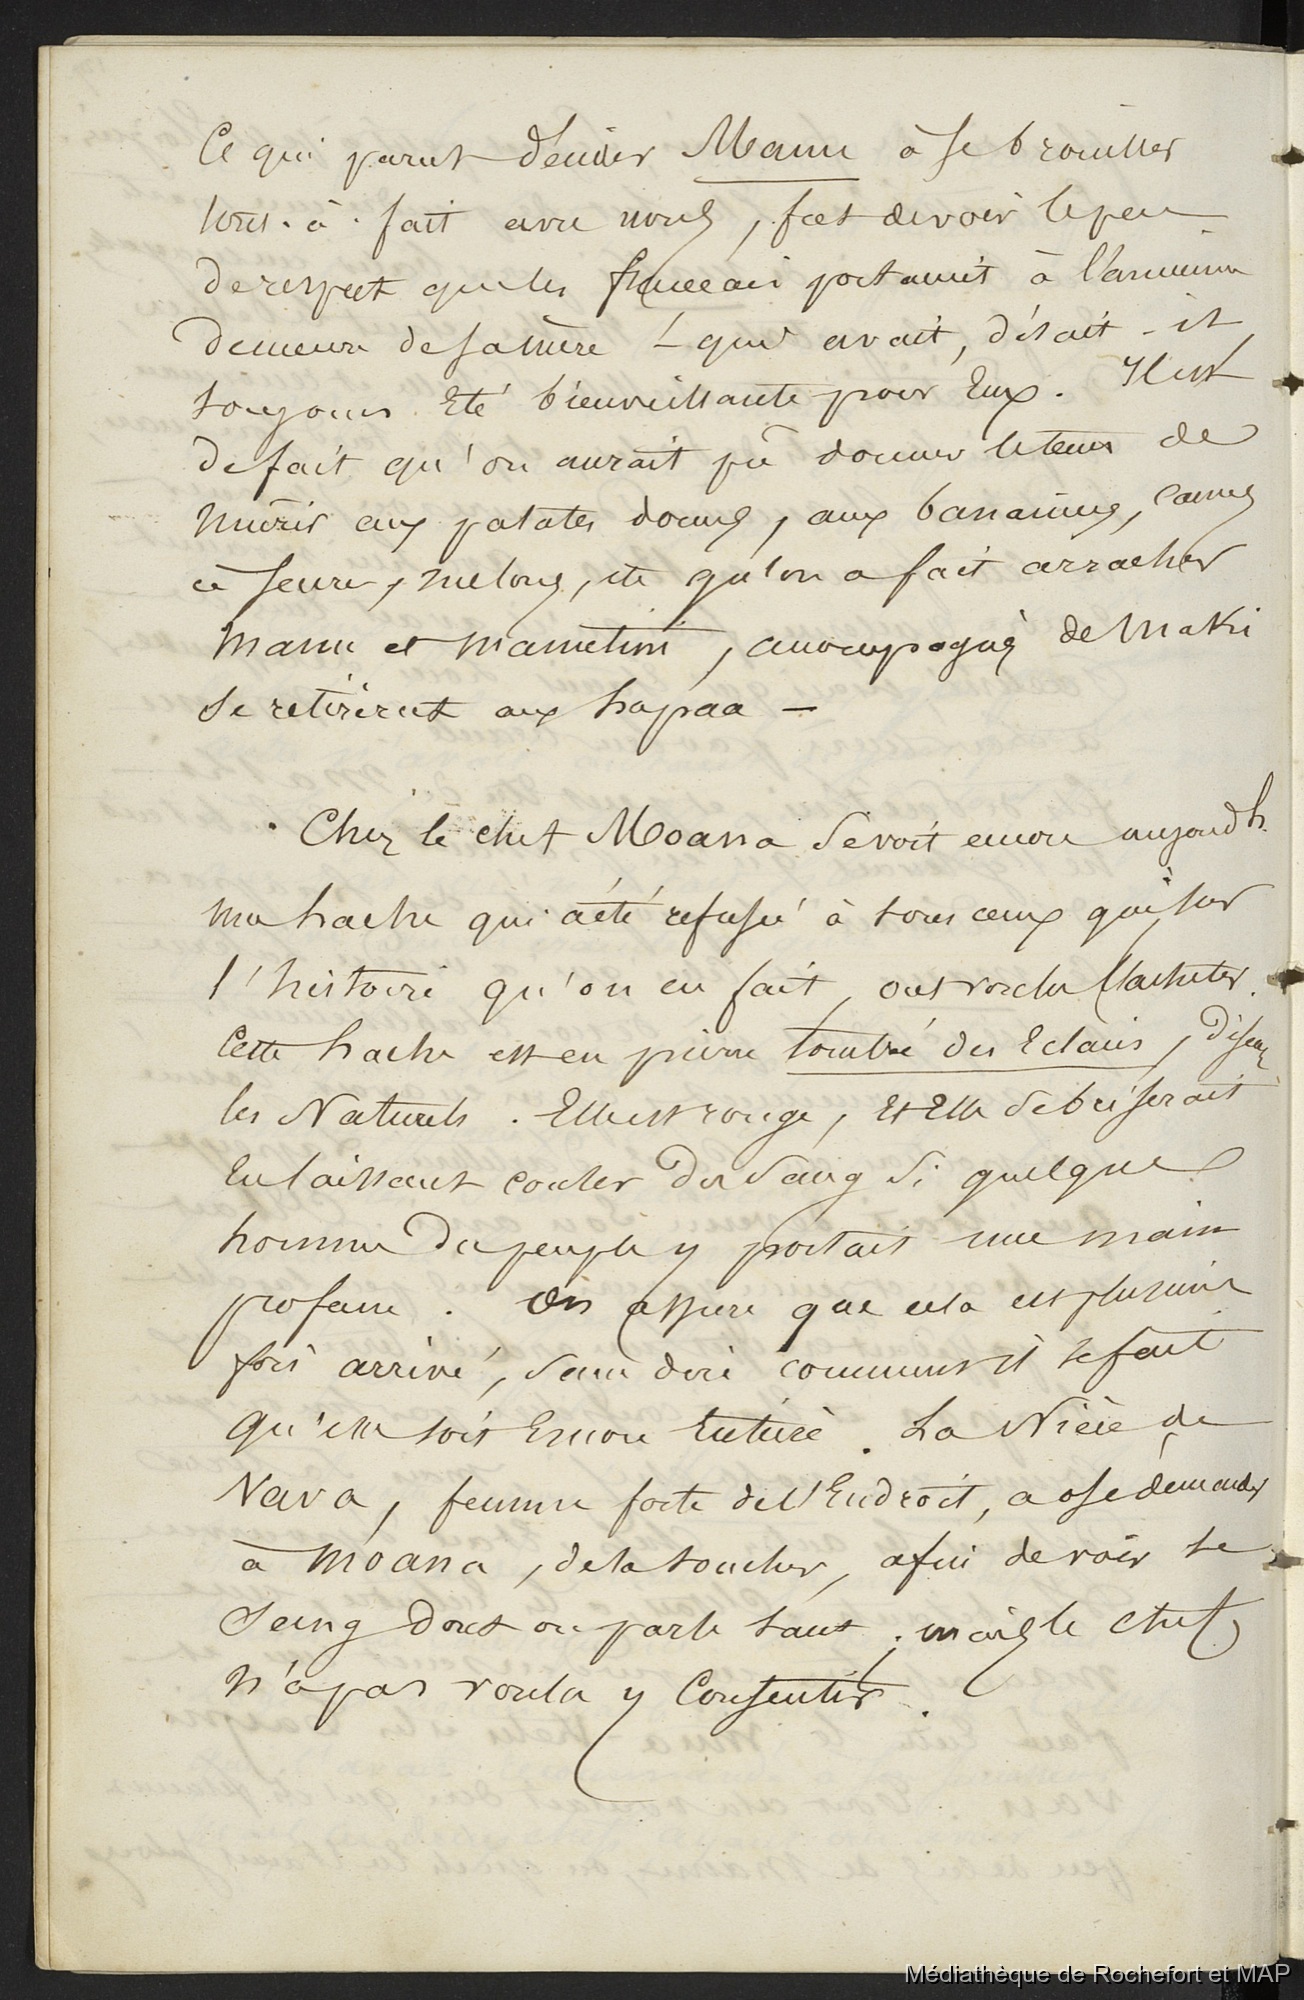 Ce qui parut décider Manu à se brouiller
tout-à-fait avec nous, fut de voir le peu
de respect que les français portaient à l'ancienne
demeure de sa mère – qui avait, disait-il,
toujours été bienveillante pour eux. Il est
de fait qu'on aurait pû donner le tems de
mûrir aux patates douces, aux bananiers, cannes
à sucre, melons, etc qu'on a fait arracher
Manu et mamétini, accompagné de Maki
se retirèrent aux hapaa –
Chez le chef Moana se voit encore aujourd'h.
une hache qui a été refusée à tous ceux qui, sur
l'histoire qu'on en fait, ont voulu l'acheter.
Cette hache est en pierre tombée des Eclairs, disent
les Naturels. Elle est rouge, et Elle se briserait
en laissant couler du sang si quelque
homme du peuple y portait une main
profane. On assure que cela est plusieurs
fois arrivé, sans dire comment il se fait
qu'elle soit encore entière. La Nièce de
Vava, femme forte de l'Endroit, a osé demander
à Moana, de la toucher, afin de voir le
sang dont on parle tant, mais le chef
n'a pas voulu y Consentir.
Médiathèque de Rochefort et MAP